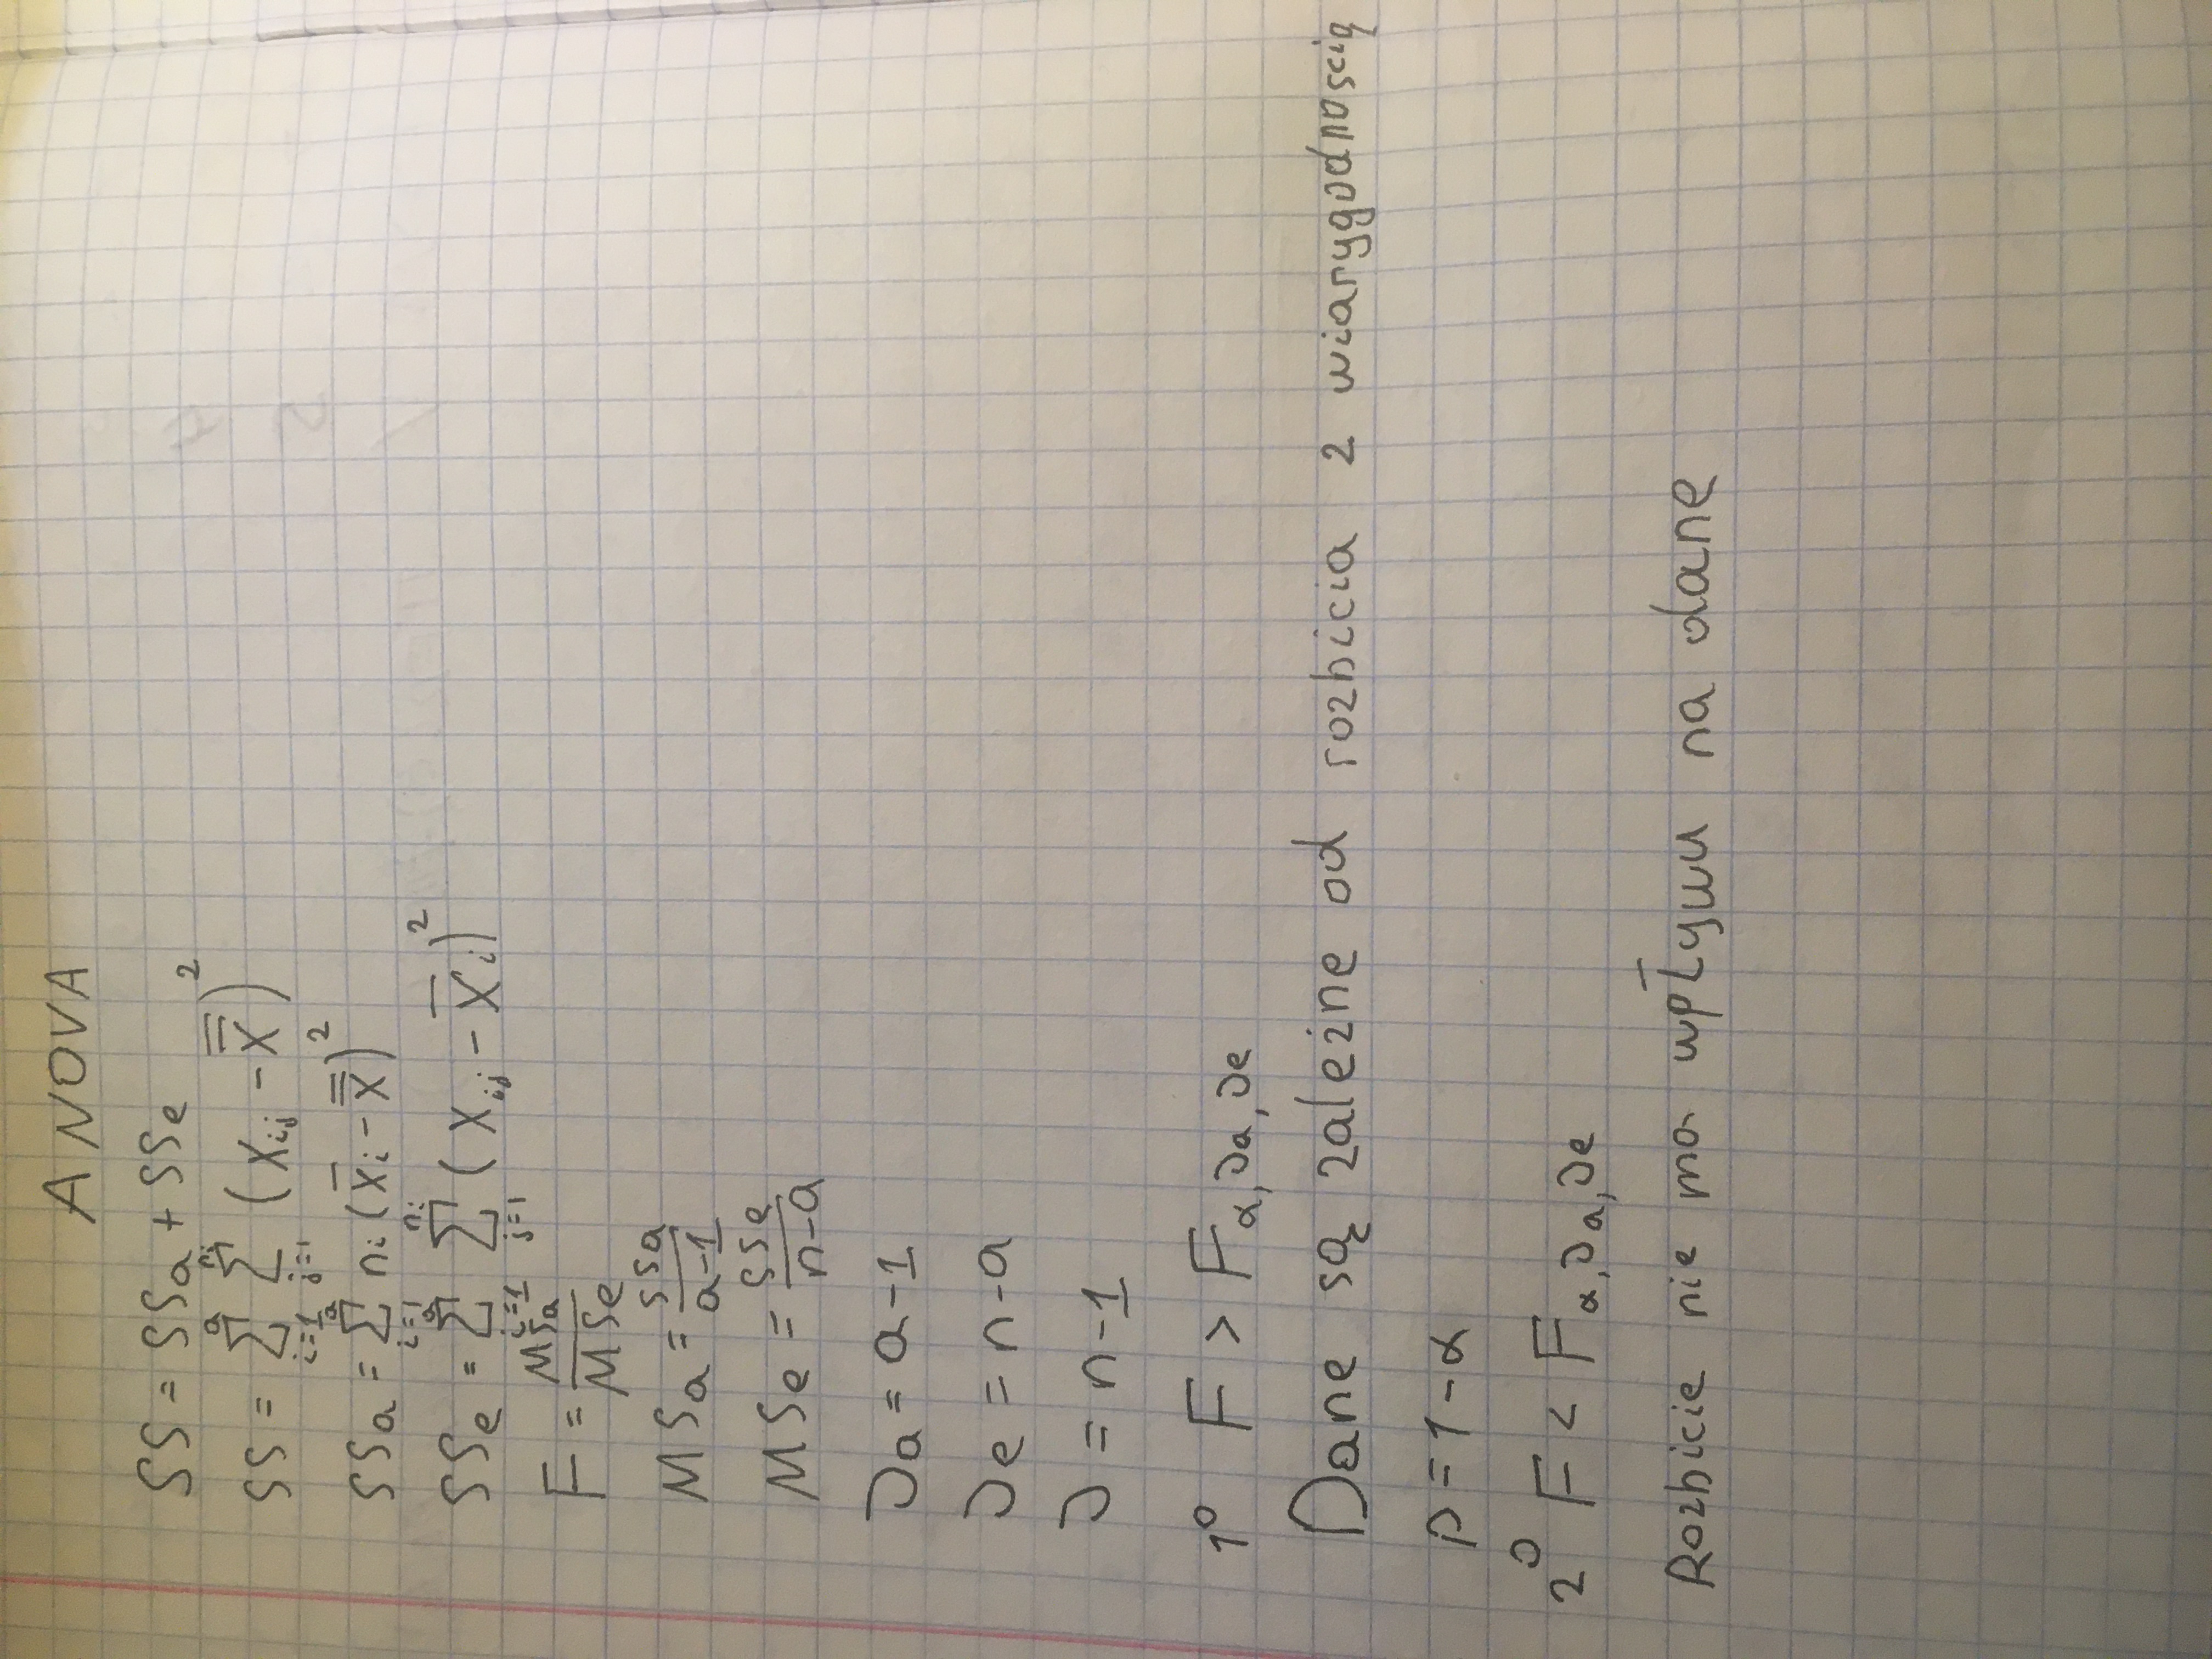 ANOVA
SS = SSa + SSe
SS = Σ_{i=1}^{a} Σ_{j=1}^{ni} (X_ij - X̿)²
SSa = Σ_{i=1}^{a} ni (X̄i - X̿)²
SSe = Σ_{i=1}^{a} Σ_{j=1}^{ni} (X_ij - X̄i)²
F = MSa / MSe
MSa = SSa / a-1
MSe = SSe / n-a
νa = a-1
νe = n-a
ν = n-1
1° F > F_{α, νa, νe}
Dane są zależne od rozbicia z wiarygodnoscią
p = 1-α
2° F < F_{α, νa, νe}
Rozbicie nie ma wpływu na dane